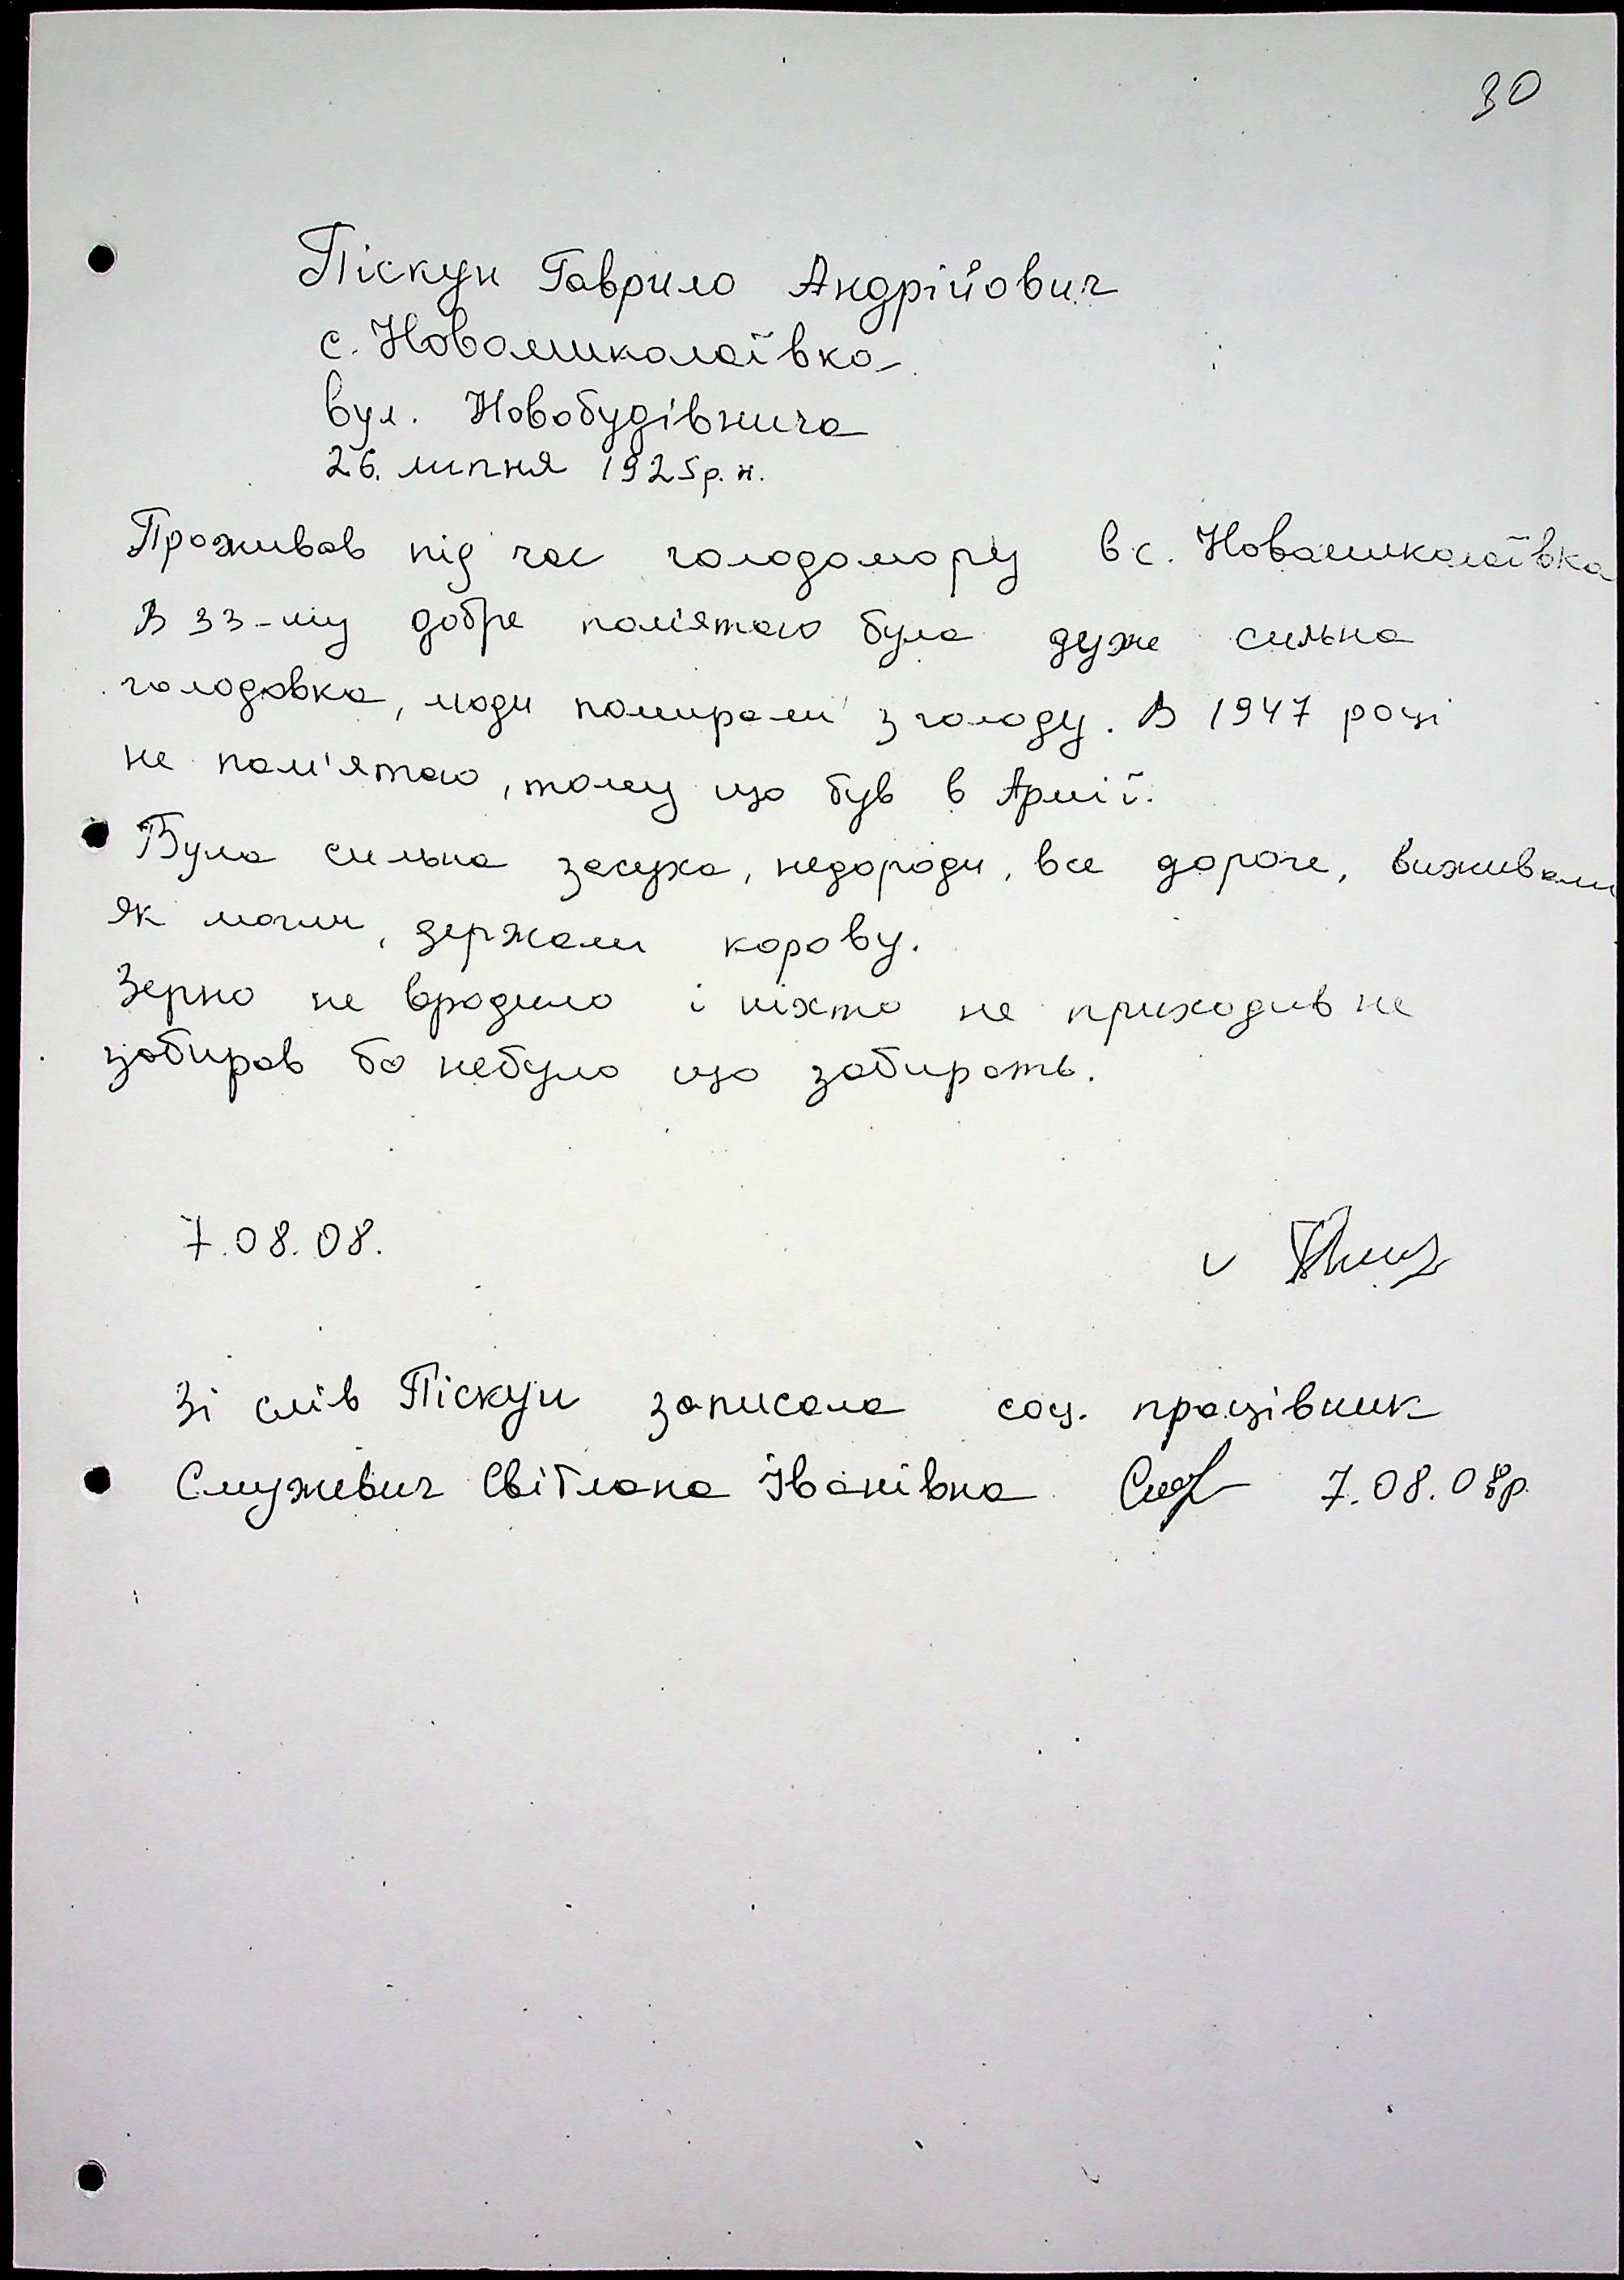 30
Піскун Гаврило Андрійович
с. Новомиколаївка
вул. Новобудівнича
26. липня 1925р. н.
Проживав під час голодомору в с. Новомиколаївка
В 33-му добре пам'ятаю була дуже сильна
голодовка, люди помирали з голоду. В 1947 році
не пам'ятаю, тому що був в Армії.
Була сильна засуха, недороди, все дороге, виживали
як могли, держали корову.
Зерно не вродило і ніхто не приходив не
забирав бо небуло що забирать.
7.08.08.
Зі слів Піскун записала соц. працівник
Служевич Світлана Іванівна 7.08.08р.